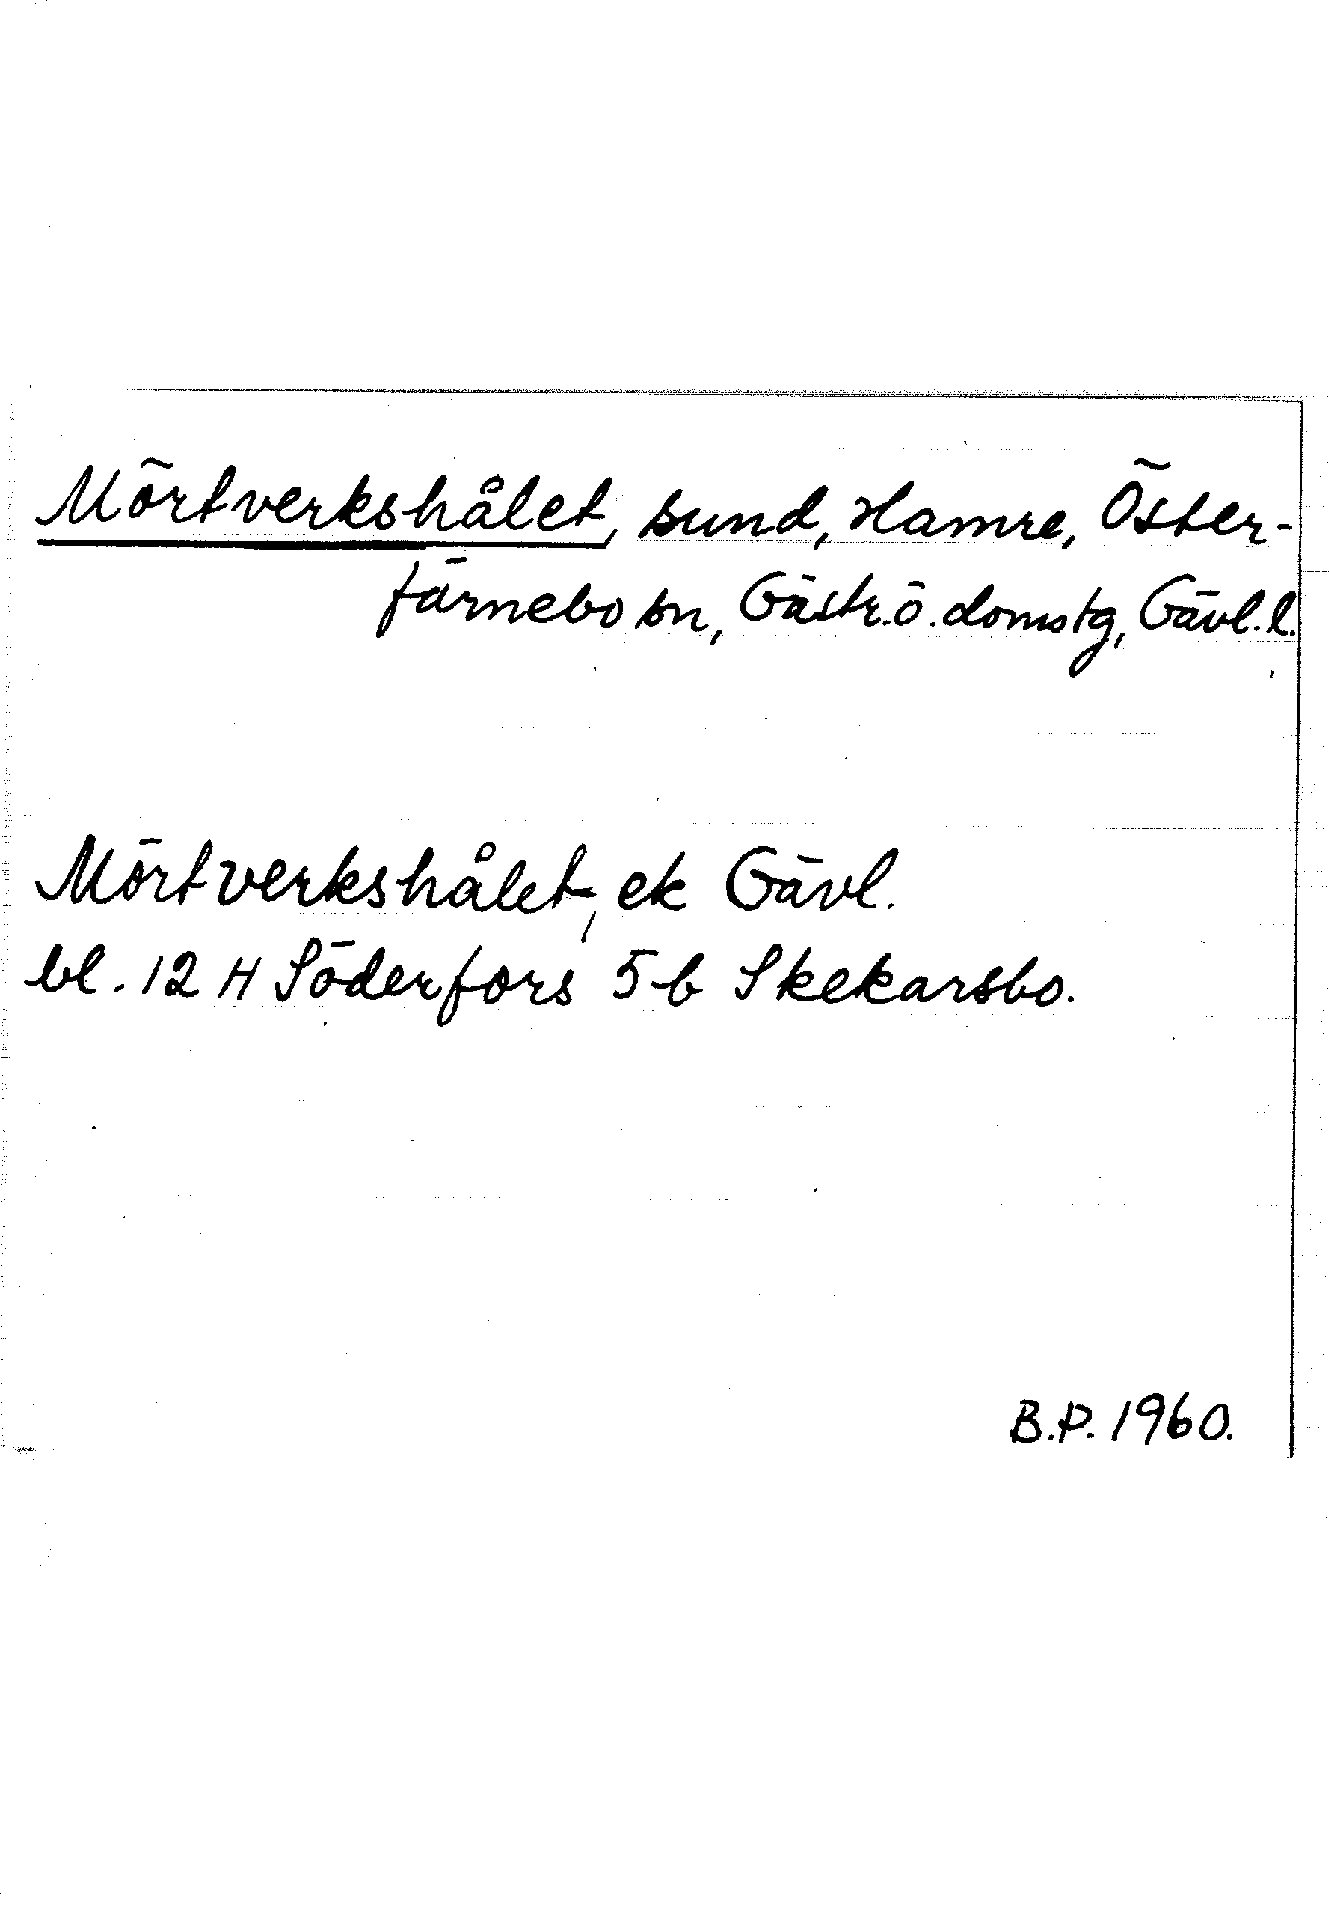 Mörtverkshålet, sund, Hamre, Öster-
färnebo sn, Gästr.ö. domstg, Gävl. l.
Mörtverkshålet, ek Gävl.
bl. 12 H Söderfors 5 b Skekarsbo.
B.P. 1960.